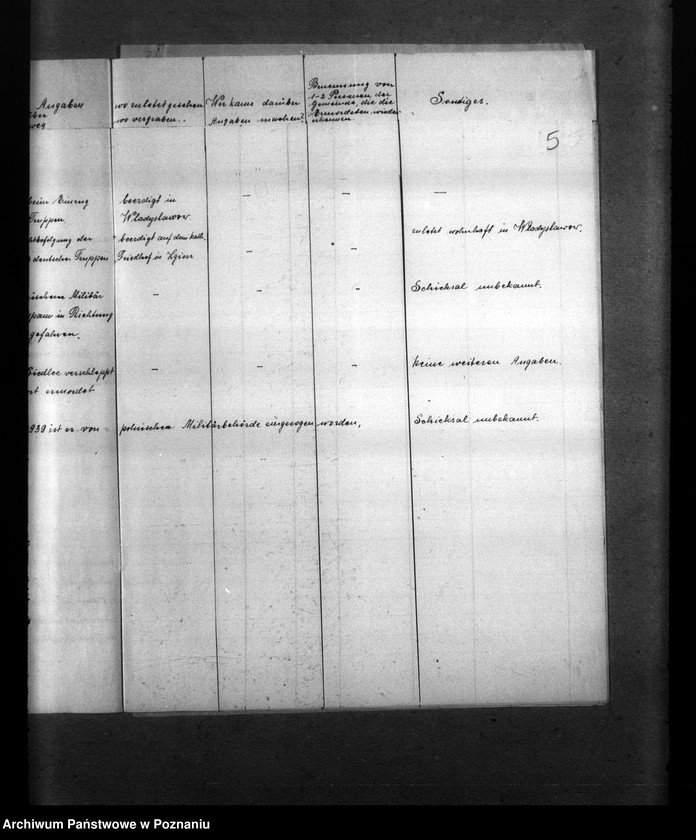 Angaben
über
weg
wo zuletzt gesehen
wo vergraben..
Wer kann darüber
Angaben machen?
Benennung von
1-2 Personen der
Gemeinde, die die
Ermordeten wieder
erkennen
Sonstiges.
5
beim Einzug
Truppen.
beerdigt in
Władysławow.
—
—
—
der
deutschen Truppen
beerdigt auf dem kath.
Friedhof in
—
—
zuletzt wohnhaft in Władysławow.
ischem Militär
in Richtung
gefahren.
—
—
—
Schicksal unbekannt.
Siedlec verschleppt
ort ermordet
—
—
—
keine weiteren Angaben.
939 ist er von -
polnischen Militärbehörde eingezogen worden,
Schicksal unbekannt.
Archiwum Państwowe w Poznaniu